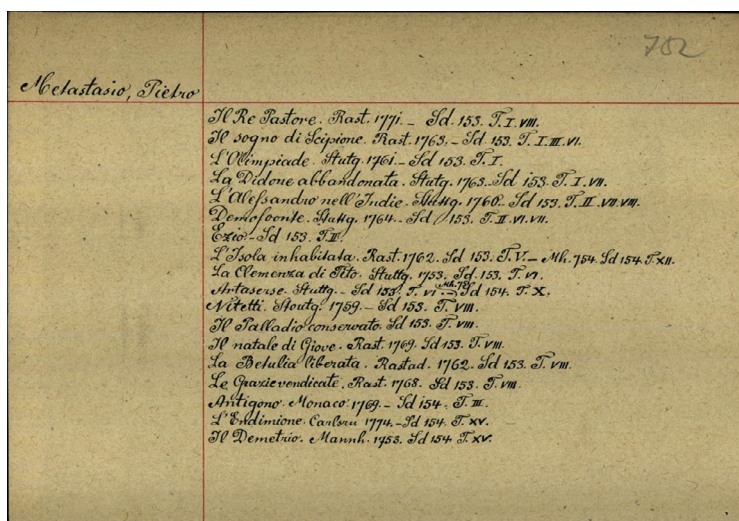 782
Metastasio, Pietro
Il Re Pastore. Rast. 1771. – Sd. 153. T. I. VIII.
Il sogno di Scipione. Rast. 1763. – Sd. 153. T. I. III. VI.
L'Olimpiade. Stutg. 1761. – Sd 153. T. I.
La Didone abbandonata. Stutg. 1763. Sd 153. T. I. VII.
L'Alessandro nell'Indie. Stuttg. 1760. Sd 153. T. II. VII. VIII.
Demofoonte. Stuttg. 1764. Sd. 153. T. II. VI. VII.
Ezio – Sd 153. T. II.
L'Isola inhabitata. Rast. 1762. Sd 153. T. V. – Mh. 754. Sd 154. T. XII.
La Clemenza di Tito. Stuttg. 1753. Sd. 153. T. VI.
Artaserse. Stuttg. – Sd 153. T. VI – Sd 154. T. X.
Nitetti. Stoutg. 1759. – Sd 153. T. VIII.
Il Palladio conservato. Sd 153. T. VIII.
Il natale di Giove. Rast. 1769. Sd 153. T. VIII.
La Betulia liberata. Rastad. 1762. Sd 153. T. VIII.
Le Grazie vendicate. Rast. 1768. Sd 153. T. VIII.
Antigono. Monaco. 1769. – Sd 154. T. III.
L'Endimione. Carlsru 1774. – Sd 154. T. XV.
Il Demetrio. Mannh. 1753. Sd 154. T. XV.